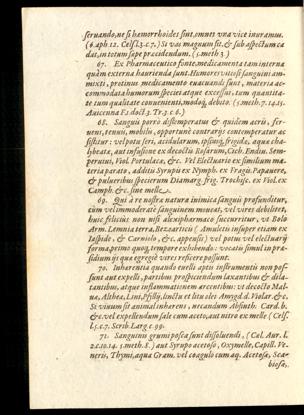 seruando, ne si hæmorrhoides sint, omnes vna vice inuramus.
(6. aph. 12. Cels. l.3. c.7.) Si vas magnum sit, & sub aspectum ca
dat, in totum sæpe præcidendum. (5. meth 3.)
67. Ex Pharmaceutico fonte, medicamenta tam interna
quàm externa haurienda sunt. Humores vitiosi sanguini am-
mixti, protinus medicamento euacuandi sunt, materia ac-
commodata humorum species atque excessui, tum quantita-
te tum qualitate conuenienti, modoq; debito. (5. meth. 7. 14. 15.
Auicenna F.1. doct. 5. Tr. 3. c. 6.)
68. Sanguis porrò distemperatus & quidem acris, fer-
uens, tenuis, mobilis, opportunè contrarijs contemperatur ac
sistitur: velpotu seri, acidularum, frigidæ, aquæ cha-
lybeata, aut infusione ex decoctis Cich. Endiu. Sem-
peruiui, Viol. Portulacæ, &c. Vel Electuario ex similium ma-
teria parato, additis Syrupo ex Nymph. ex Fragis. Papauere,
& pulueribus specierum Diamarg. frig. Trochisc. ex Viol. ex
Camph. &c. sine melle.
69. Qui à re nostra natura inimica sanguis profunditur,
eum vel immoderatè sanguinem moueat, vel vires debilitet,
huic feliciùs non nisi alexipharmaco succurritur, vt Bolo
Arm. Lemnia terra, Bezoarticis (Amuletis insuper etiam ex
Iaspide, & Carneolo, &c. appensis) vel potus vel electuarij
forma, primo quoq; tempore exhibendo: vocatis simul in præ-
sidium ijs quæ egregiè vires reficere possunt.
70. Inhærentia quando euelli aptis instrumentis non pos-
sunt aut expelli, partibus prospiciendum laxantibus & di-
latantibus, atque inflammationem arcentibus: vt decocto Mal-
uæ, Altheæ, Lini, Psyllij, linctu ex lite oleo Amygd. d. Violar. &c.
Si viuum sit animal inhærens, necandum Absinth. Card. b.
&c. vel expellendum sale cum aceto, aut nitro ex melle (Cels.
l. 5. c. 7. Scrib. Larg. c. 99.
71. Sanguinis grumi posca sunt dissoluendi, (Cel. Aur. l.
2. c. 10. 14. 5. meth. 8.) aut Syrupo acetoso, Oxymelle, Capill. Ve-
neris, Thymi, aqua Gram. vel coagulo cum aq. Acetosæ, Sca-
biosæ,